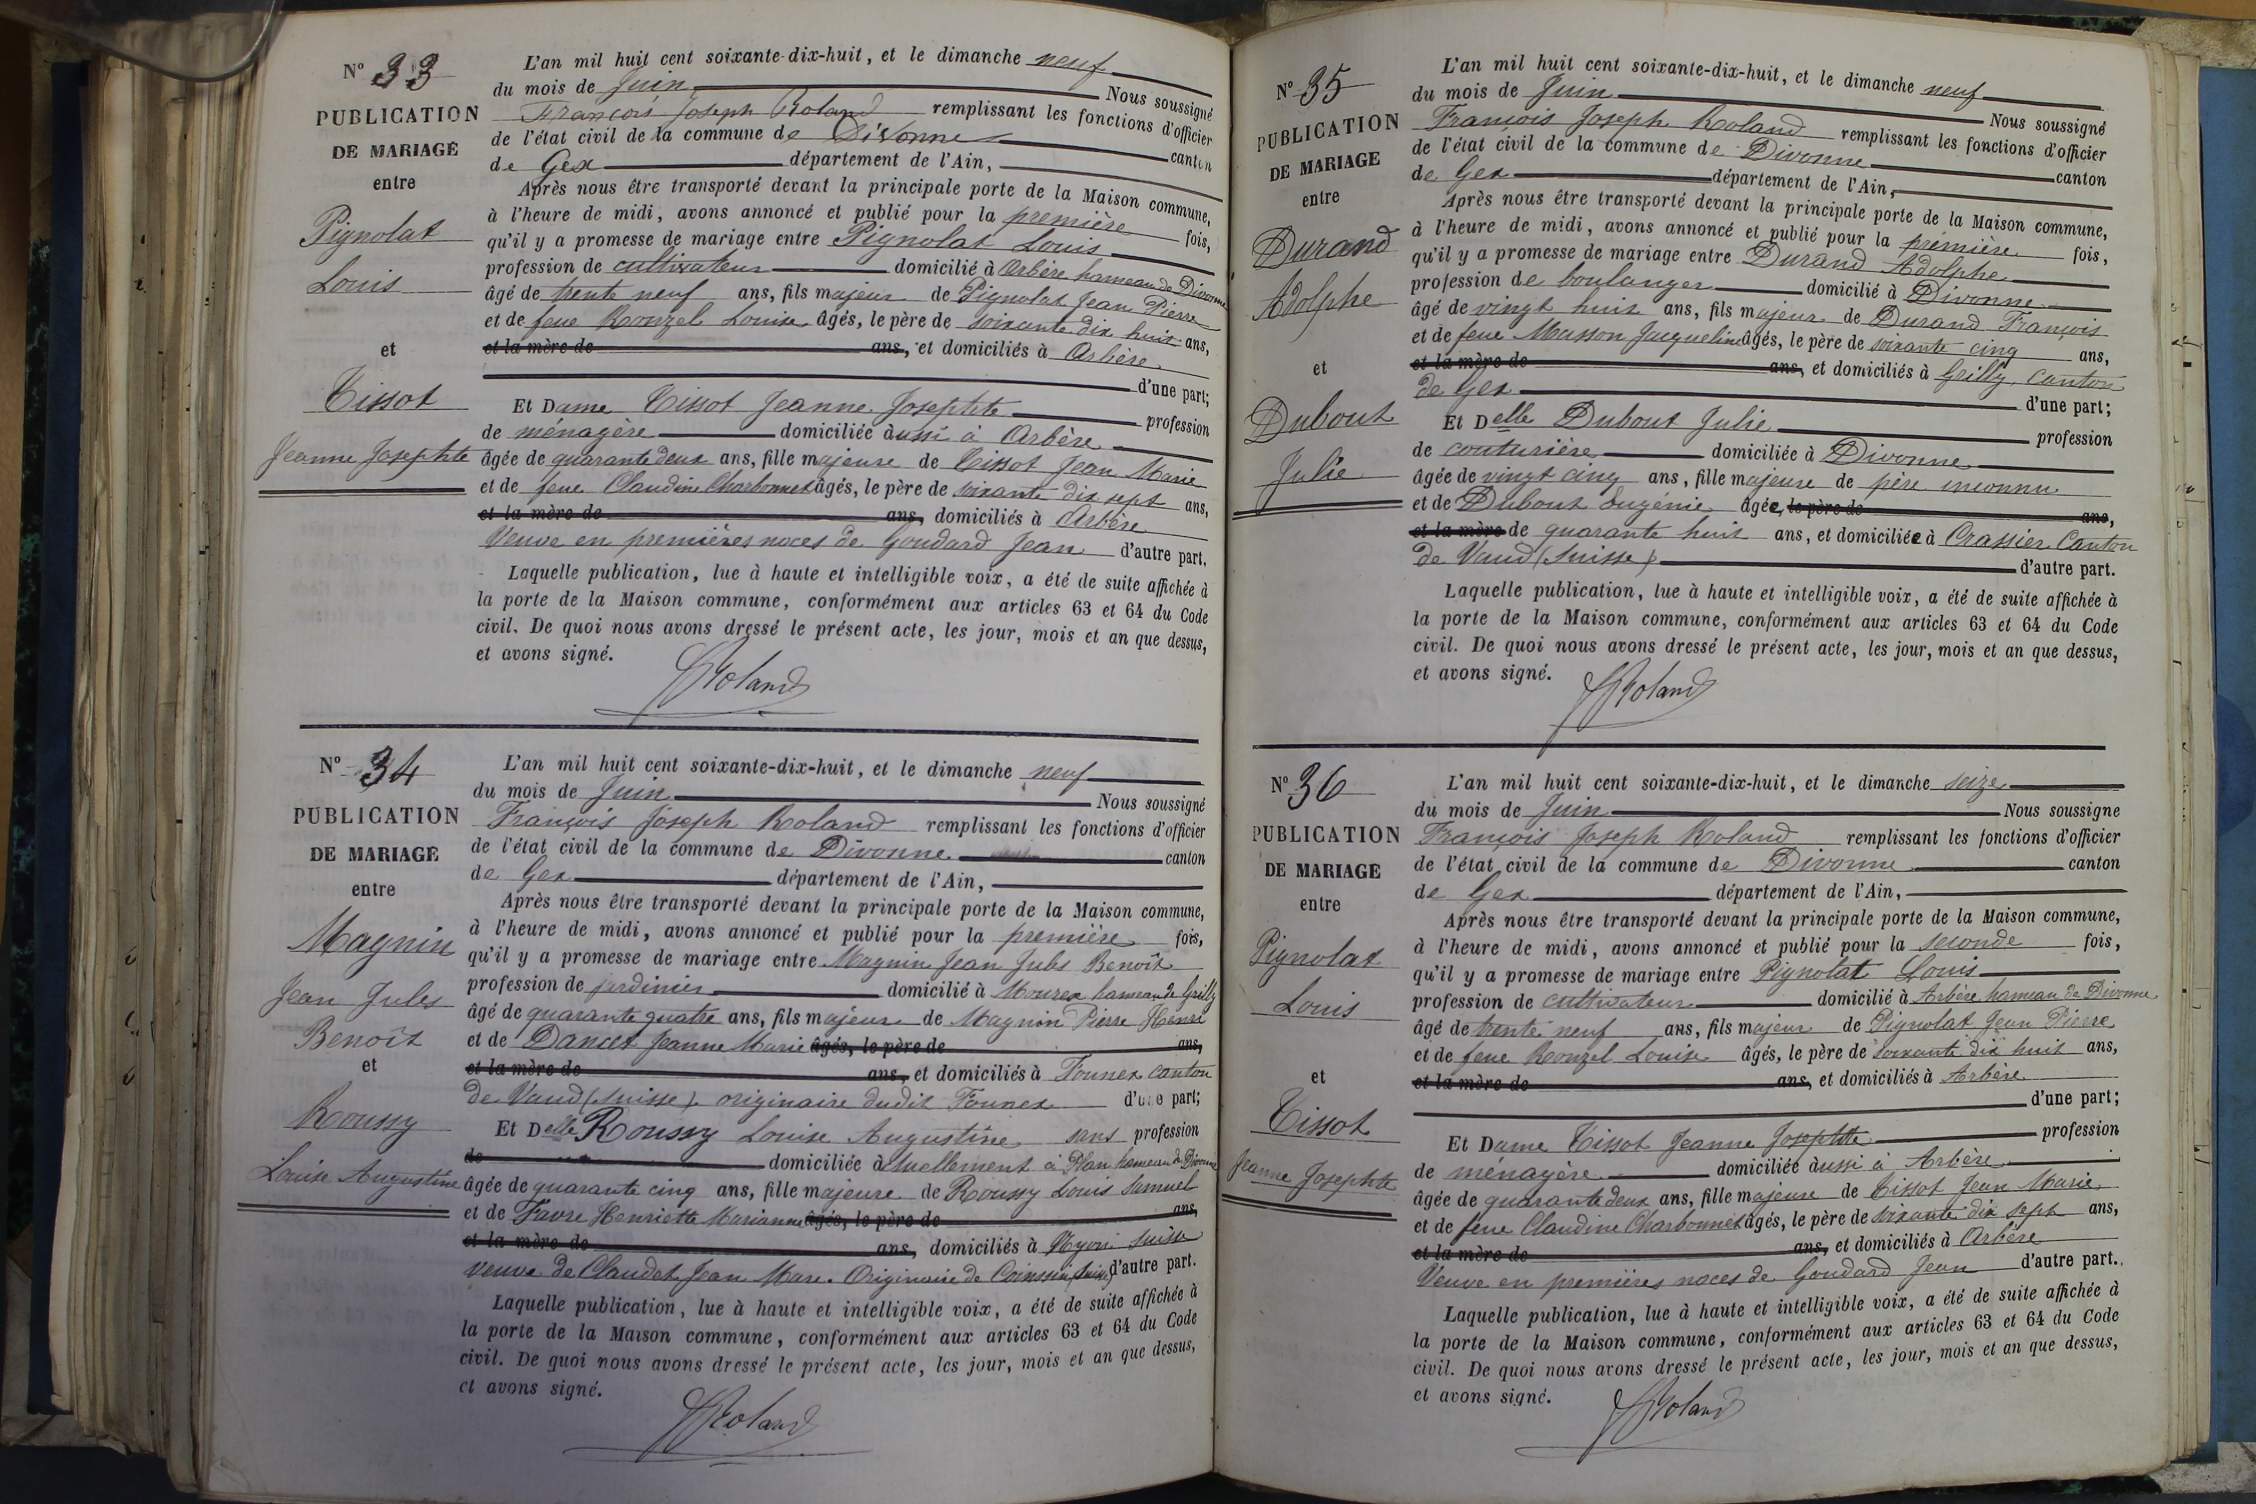 N° 33
PUBLICATION
DE MARIAGE
entre
Pignolat
Louis
et
Tissot
Jeanne Josephte
L'an mil huit cent soixante-dix-huit, et le dimanche neuf
du mois de Juin Nous soussigné
François Joseph Roland remplissant les fonctions d'officier
de l'état civil de la commune de Divonne canton
de Gex département de l'Ain,
Après nous être transporté devant la principale porte de la Maison commune,
à l'heure de midi, avons annoncé et publié pour la première fois,
qu'il y a promesse de mariage entre Pignolat Louis
profession de cultivateur domicilié à Arbère hameau de Divonne
âgé de trente neuf ans, fils majeur de Pignolat Jean Pierre
et de feue Rouzel Louise âgés, le père de soixante dix huit ans,
et la mère de ans, et domiciliés à Arbère
d'une part;
Et Dame Tissot Jeanne Josephte profession
de ménagère domiciliée aussi à Arbère
âgée de quarante deux ans, fille majeure de Tissot Jean Marie
et de feue Claudine Charbonnet âgés, le père de soixante dix sept ans,
et la mère de ans, domiciliés à Arbère
Veuve en premières noces de Goudard Jean d'autre part.
Laquelle publication, lue à haute et intelligible voix, a été de suite affichée à
la porte de la Maison commune, conformément aux articles 63 et 64 du Code
civil. De quoi nous avons dressé le présent acte, les jour, mois et an que dessus,
et avons signé.
Roland
N° 34
PUBLICATION
DE MARIAGE
entre
Magnin
Jean Jules
Benoît
et
Roussy
Louise Augustine
L'an mil huit cent soixante-dix-huit, et le dimanche neuf
du mois de Juin Nous soussigné
François Joseph Roland remplissant les fonctions d'officier
de l'état civil de la commune de Divonne canton
de Gex département de l'Ain,
Après nous être transporté devant la principale porte de la Maison commune,
à l'heure de midi, avons annoncé et publié pour la première fois,
qu'il y a promesse de mariage entre Magnin Jean Jules Benoît
profession de jardinier domicilié à Mourex hameau de Grilly
âgé de quarante quatre ans, fils majeur de Magnin Pierre Henri
et de Dancet Jeanne Marie âgés, le père de ans,
et la mère de ans, et domiciliés à Founex canton
de Vaud (Suisse) originaire dudit Founex d'une part;
Et Delle Roussy Louise Augustine sans profession
de domiciliée actuellement à Plan hameau de Divonne
âgée de quarante cinq ans, fille majeure de Roussy Louis Samuel
et de Favre Henriette Marianne âgés, le père de ans,
et la mère de ans, domiciliés à Nyon Suisse
veuve de Claudet Jean Marc. Originaire de Coinssin (Suisse) d'autre part.
Laquelle publication, lue à haute et intelligible voix, a été de suite affichée à
la porte de la Maison commune, conformément aux articles 63 et 64 du Code
civil. De quoi nous avons dressé le présent acte, les jour, mois et an que dessus,
et avons signé.
Roland
N° 35
PUBLICATION
DE MARIAGE
entre
Durand
Adolphe
et
Dubout
Julie
L'an mil huit cent soixante-dix-huit, et le dimanche neuf
du mois de Juin Nous soussigné
François Joseph Roland remplissant les fonctions d'officier
de l'état civil de la commune de Divonne canton
de Gex département de l'Ain,
Après nous être transporté devant la principale porte de la Maison commune,
à l'heure de midi, avons annoncé et publié pour la première fois,
qu'il y a promesse de mariage entre Durand Adolphe
profession de boulanger domicilié à Divonne
âgé de vingt huit ans, fils majeur de Durand François
et de feue Masson Jacqueline âgés, le père de soixante cinq ans,
et la mère de ans, et domiciliés à Grilly canton
de Gex d'une part;
Et Delle Dubout Julie profession
de couturière domiciliée à Divonne
âgée de vingt cinq ans, fille majeure de père inconnu
et de Dubout Eugénie âgée, le père de ans,
et la mère de quarante huit ans, et domiciliée à Crassier Canton
de Vaud (Suisse) d'autre part.
Laquelle publication, lue à haute et intelligible voix, a été de suite affichée à
la porte de la Maison commune, conformément aux articles 63 et 64 du Code
civil. De quoi nous avons dressé le présent acte, les jour, mois et an que dessus,
et avons signé.
Roland
N° 36
PUBLICATION
DE MARIAGE
entre
Pignolat
Louis
et
Tissot
Jeanne Josephte
L'an mil huit cent soixante-dix-huit, et le dimanche seize
du mois de Juin Nous soussigné
François Joseph Roland remplissant les fonctions d'officier
de l'état civil de la commune de Divonne canton
de Gex département de l'Ain,
Après nous être transporté devant la principale porte de la Maison commune,
à l'heure de midi, avons annoncé et publié pour la seconde fois,
qu'il y a promesse de mariage entre Pignolat Louis
profession de cultivateur domicilié à Arbère hameau de Divonne
âgé de trente neuf ans, fils majeur de Pignolat Jean Pierre
et de feue Rouzel Louise âgés, le père de soixante dix huit ans,
et la mère de ans, et domiciliés à Arbère
d'une part;
Et Dame Tissot Jeanne Josephte profession
de ménagère domiciliée aussi à Arbère
âgée de quarante deux ans, fille majeure de Tissot Jean Marie
et de feue Claudine Charbonnet âgés, le père de soixante dix sept ans,
et la mère de ans, et domiciliés à Arbère
Veuve en premières noces de Goudard Jean d'autre part.
Laquelle publication, lue à haute et intelligible voix, a été de suite affichée à
la porte de la Maison commune, conformément aux articles 63 et 64 du Code
civil. De quoi nous avons dressé le présent acte, les jour, mois et an que dessus,
et avons signé.
Roland